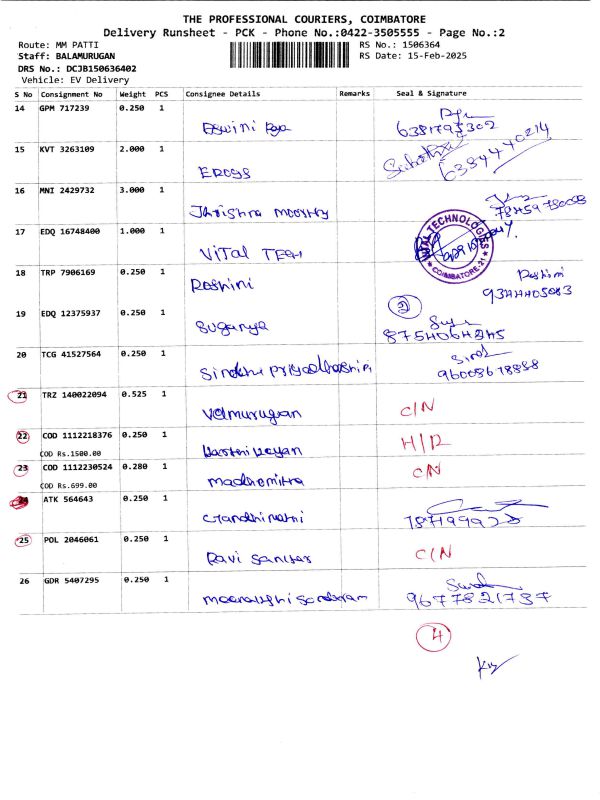 THE PROFESSIONAL COURIERS, COIMBATORE
Delivery Runsheet - PCK - Phone No.:0422-3505555 - Page No.:2
Route: MM PATTI RS No.: 1506364
Staff: BALAMURUGAN RS Date: 15-Feb-2025
DRS No.: DCJB150636402
Vehicle: EV Delivery
S No Consignment No Weight PCS Consignee Details Remarks Seal & Signature
14 GPM 717239 0.250 1
6381795302
15 KVT 3263109 2.000 1 EROSS
6384440214
16 MNI 2429732 3.000 1
17 EDQ 16748400 1.000 1 VITAL TECH
VITAL TECHNOLOGIES
COIMBATORE-21
18 TRP 7906169 0.250 1 Roshini Roshini
2
19 EDQ 12375937 0.250 1 Suganya
20 TCG 41527564 0.250 1 Sindhu Priyadharshini
21 TRZ 140022094 0.525 1 Velmurugan C/N
22 COD 1112218376 0.250 1
COD Rs.1500.00
23 COD 1112230524 0.280 1 Madhumitra C/N
COD Rs.699.00
24 ATK 564643 0.250 1
25 POL 2046061 0.250 1 Ravi C/N
26 GDR 5407295 0.250 1
9677821737
4